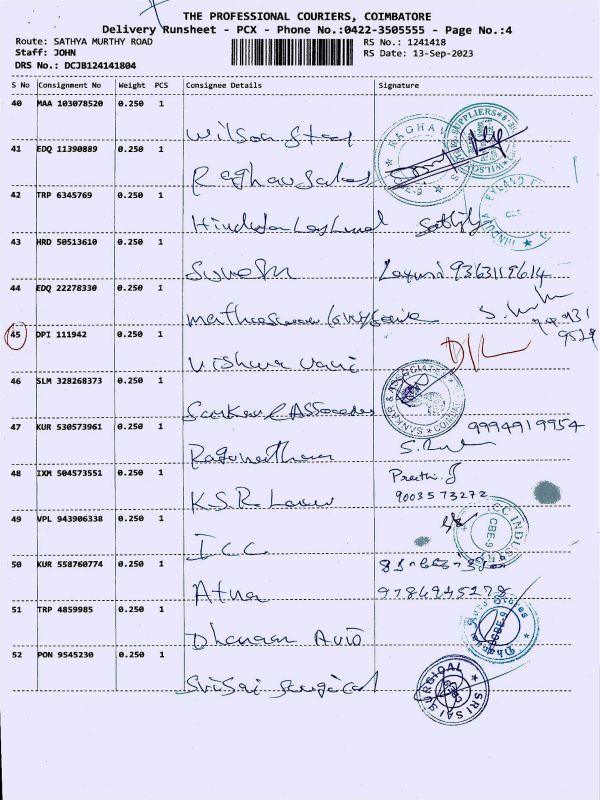 THE PROFESSIONAL COURIERS, COIMBATORE
Delivery Runsheet - PCX - Phone No.:0422-3505555 - Page No.:4
Route: SATHYA MURTHY ROAD RS No.: 1241418
Staff: JOHN RS Date: 13-Sep-2023
DRS No.: DCJB124141804
S No Consignment No Weight PCS Consignee Details Signature
40 MAA 103078520 0.250 1
Wilson Steel
41 EDQ 11390889 0.250 1
Raghav Sales
42 TRP 6345769 0.250 1
Hinduja Leyland
43 HRD 50513610 0.250 1
Suresh 9363119614
44 EDQ 22278330 0.250 1
45 DPI 111942 0.250 1
Vishwa Vani D/L
46 SLM 328268373 0.250 1
Sankar & Associates
47 KUR 530573961 0.250 1 9994919954
Ragunathan
48 IXM 504573551 0.250 1 Preethi.J
K.S.R 9003573272
49 VPL 943906338 0.250 1
ICC
50 KUR 558760774 0.250 1
51 TRP 4859985 0.250 1
Dhanam Auto
52 PON 9545230 0.250 1
Sri Sai Surgical
SRI SAI SURGICAL